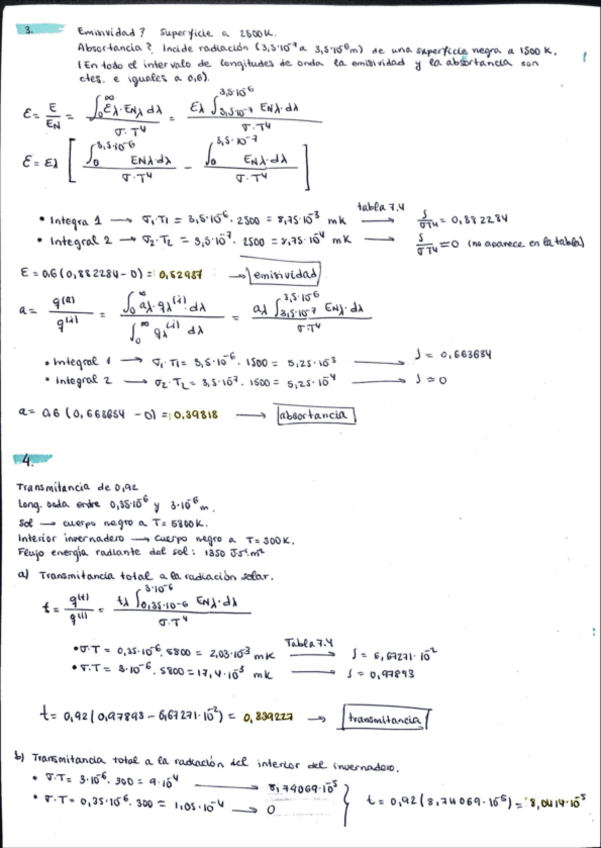 3. Emisividad? Superficie a 2500K.
Absortancia? Incide radiación (3,5·10⁻⁷ a 3,5·10⁻⁶m) de una superficie negra a 1500 K.
(En todo el intervalo de longitudes de onda la emisividad y la absortancia son
ctes. e iguales a 0,6).
ε = E/E_N = ∫₀^∞ ελ·ENλ dλ / σ·T⁴ = ελ ∫_{3,5·10⁻⁷}^{3,5·10⁻⁶} ENλ·dλ / σ·T⁴
ε = ελ [ ∫₀^{3,5·10⁻⁶} ENλ·dλ / σ·T⁴ − ∫₀^{3,5·10⁻⁷} ENλ·dλ / σ·T⁴ ]
• Integra 1 → σ₁·T₁ = 3,5·10⁻⁶·2500 = 8,75·10⁻³ mK → tabla 7.4 ∫/σT⁴ = 0,882284
• Integral 2 → σ₂·T₂ = 3,5·10⁻⁷·2500 = 8,75·10⁻⁴ mK → ∫/σT⁴ = 0 (no aparece en la tabla)
E = 0.6 (0,882284 − 0) = 0,52937 → emisividad
a = q⁽ᵃ⁾/q⁽ⁱ⁾ = ∫₀^∞ aλ·qλ⁽ⁱ⁾·dλ / ∫₀^∞ qλ⁽ⁱ⁾ dλ = aλ ∫_{3,5·10⁻⁷}^{3,5·10⁻⁶} ENλ·dλ / σ·T⁴
• Integral 1 → σ₁·T₁ = 3,5·10⁻⁶·1500 = 5,25·10⁻³ → ∫ = 0,663654
• Integral 2 → σ₂·T₂ = 3,5·10⁻⁷·1500 = 5,25·10⁻⁴ → ∫ ≈ 0
a = 0.6 (0,663654 − 0) = 0,39818 → absortancia
4.
Transmitancia de 0,92
Long. onda entre 0,35·10⁻⁶ y 3·10⁻⁶ m.
Sol → cuerpo negro a T = 5800K.
Interior invernadero → cuerpo negro a T = 300K.
Flujo energía radiante del sol: 1350 Js⁻¹m⁻²
a) Transmitancia total a la radiación solar.
t = q⁽ᵗ⁾/q⁽ⁱ⁾ = tλ ∫_{0,35·10⁻⁶}^{3·10⁻⁶} ENλ·dλ / σ·T⁴
• σ·T = 0,35·10⁻⁶·5800 = 2,03·10⁻³ mK → Tabla 7.4 ∫ = 6,67271·10⁻²
• σ·T = 3·10⁻⁶·5800 = 17,4·10⁻³ mK → ∫ = 0,97893
t = 0,92 (0,97893 − 6,67271·10⁻²) = 0,839227 → transmitancia
b) Transmitancia total a la radiación del interior del invernadero.
• σ·T = 3·10⁻⁶·300 = 9·10⁻⁴ → 8,74069·10⁻⁵
• σ·T = 0,35·10⁻⁶·300 = 1,05·10⁻⁴ → 0 } t = 0,92 (8,74069·10⁻⁵) = 8,0414·10⁻⁵